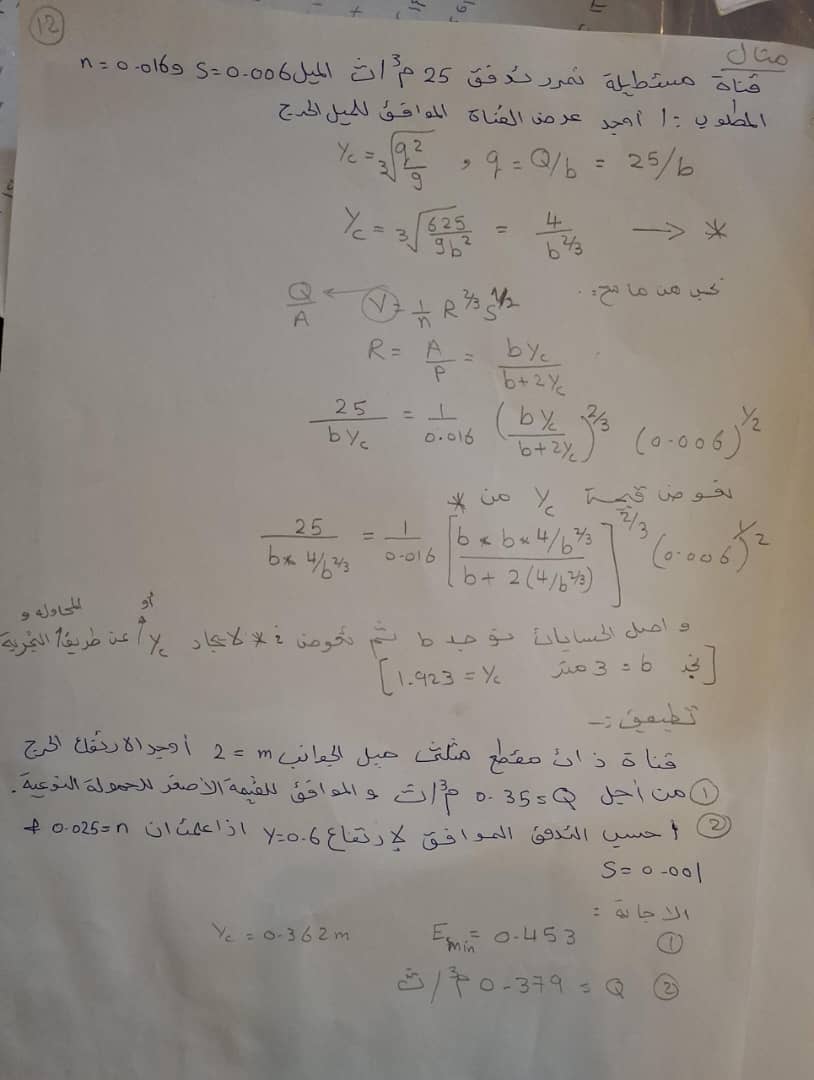 12
مثال
قناة مستطيلة تمرر تدفق 25 م3/ث الميل S=0.006 و n=0.016
المطلوب :- / أوجد عرض القناة الموافق للميل الحرج
Yc = 3√(q2/g) , q = Q/b = 25/b
Yc = 3√(625/9b2) = 4/b^2/3 → *
نحن من ما نج:
Q/A ← V = 1/n R^2/3 S^1/2
R = A/P = bYc/(b+2Yc)
25/bYc = 1/0.016 (bYc/(b+2Yc))^2/3 (0.006)^1/2
نعوض قيمة Yc من *
25/(b*4/b^2/3) = 1/0.016 [b * b*4/b^2/3 / (b + 2(4/b^2/3))]^2/3 (0.006)^1/2
واصل الحسابات نوجد b ثم نعوض في * لايجاد Yc أو عن طريق المحاوله و التجربة
[نجد b = 3 متر Yc = 1.923]
تطبيق :-
قناة ذات مقطع مثلثي ميل الجوانب m = 2 أوجد الارتفاع الحرج
① من أجل Q=0.35 م3/ث و الموافق للقيمة الأصغر للحمولة النوعية.
② احسب التدفق الموافق لارتفاع y=0.6 اذا علمت ان n=0.025 &
S=0.001
الاجابة :
① Emin = 0.453 Yc = 0.362 m
② Q = 0.379 م3/ث